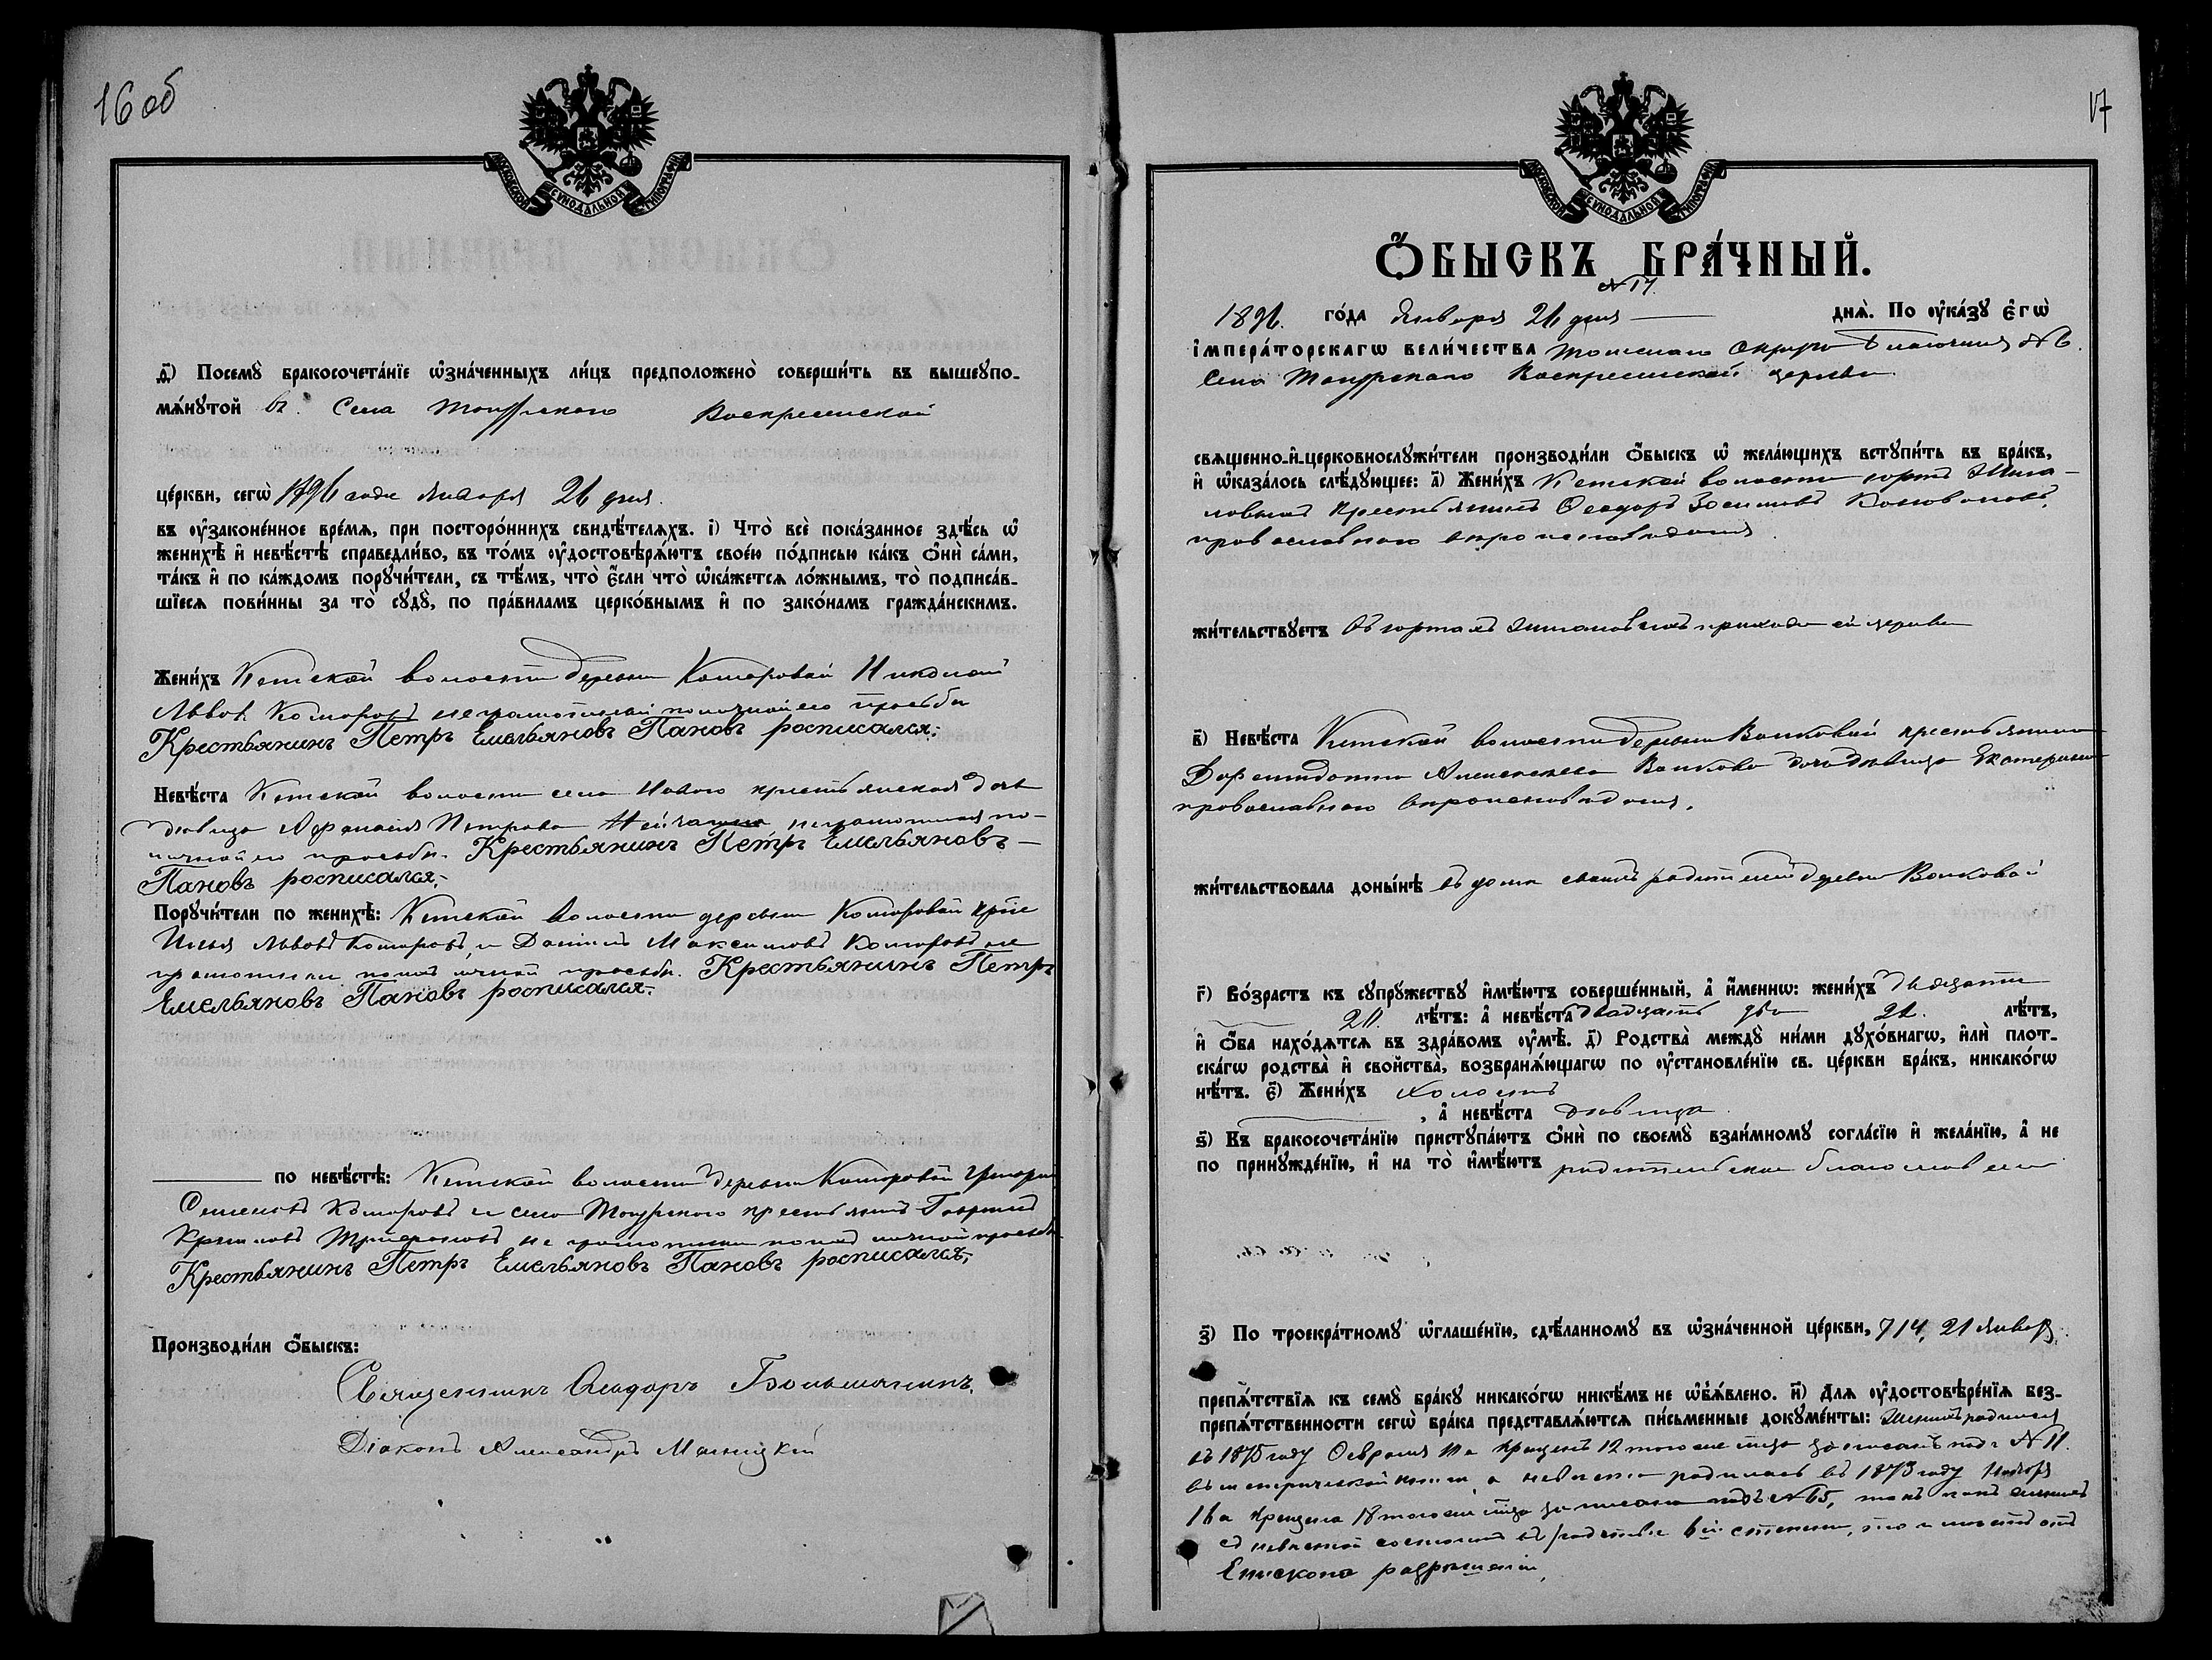 16 об
МОСКОВСКОЙ СѴНОДАЛЬНОЙ ТИПОГРАФІИ
ѳ҃) Посемꙋ̀ бракосочета́нїе ѡ҆зна́ченныхъ ли́цъ предположено̀ соверши́ть въ вышеупо-
мѧ́нꙋтой въ Села Тогурскаго Воскресенской
це́ркви, сегѡ̀ 1896 года Января 26 дня.
въ ᲂу҆законе́нное вре́мѧ, при посторо́ннихъ свидѣ́телѧхъ. і҃) Что̀ всѐ пока́занное здѣ́сь ѡ҆
женихѣ̀ и҆ невѣ́стѣ справедли́во, въ то́мъ ᲂу҆достовѣрѧ́ютъ свое́ю по́дписью ка́къ ѻ҆нѝ са́ми,
та́къ и҆ по ка́ждомъ порꙋчи́тели, съ тѣ́мъ, что̀ є҆́сли что̀ ѡ҆ка́жетсѧ ло́жнымъ, то̀ подписа́в-
шїесѧ пови́нны за то̀ сꙋдꙋ̀, по пра́виламъ церко́внымъ и҆ по зако́намъ гражда́нскимъ.
Жени́хъ Кетской волости деревни Комаровой Николай
Львовъ Комаровъ неграмотный по личной его просьбѣ
Крестьянинъ Петръ Емельяновъ Пановъ росписался.
Невѣ́ста Кетской волости села Новаго крестьянская дочь
дѣвица Афанасія Петрова неграмотная по-
личной ея просьбѣ. Крестьянинъ Петръ Емельяновъ —
Пановъ росписался.
Порꙋчи́тели по женихѣ̀: Кетской волости деревни Комаровой крес
Илья Львовъ Комаровъ и Данiилъ Максимовъ Комаровъ не
грамотные по ихъ личной просьбѣ. Крестьянинъ Петръ
Емельяновъ Пановъ росписался.
по невѣ́стѣ: Кетской волости деревни Комаровой Григорій
Семеновъ Комаровъ и села Тогурскаго крестьянинъ Гаврiилъ
неграмотные по ихъ личной просьбѣ
Крестьянинъ Петръ Емельяновъ Пановъ росписался.
Производи́ли ѻ҆́быскъ:
Священникъ Ѳеодоръ Большанинъ.
Діаконъ Александръ
17
МОСКОВСКОЙ СѴНОДАЛЬНОЙ ТИПОГРАФІИ
Ѻ҆́БЫСКЪ БРА́ЧНЫЙ.
№ 17.
1896. го́да Января 26 дня днѧ̀. По ᲂу҆ка́зꙋ є҆гѡ̀
і҆мпера́торскагѡ вели́чества Томскаго Округа Благочинія № 6.
Села Тогурскаго Воскресенской церкви
свѧщенно-и҆-церковнослꙋжи́тели производи́ли ѻ҆́быскъ ѡ҆ жела́ющихъ встꙋпи́ть въ бра́къ,
и҆ ѡ҆каза́лось слѣ́дꙋющее: а҃) Жени́хъ Кетской волости юртъ
крестьянинъ Ѳеодоръ Зосимовъ Коноваловъ,
православнаго вѣроисповѣданія.
жи́тельствꙋетъ Въ юртахъ прихода сей церкви
в҃) Невѣ́ста Кетской волости деревни Волковой крестьянина
Алексѣева Волкова дочь дѣвица Екатерина
православнаго вѣроисповѣданія.
жи́тельствовала доны́нѣ въ домѣ своихъ родителей деревни Волковой
г҃) Во́зрастъ къ сꙋпрꙋ́жествꙋ и҆мѣ́ютъ соверше́нный, а҆ и҆́меннѡ: жени́хъ Двадцати
20. лѣ́тъ: а҆ невѣ́ста двадцать два 22. лѣ́тъ,
и҆ ѻ҆́ба нахо́дѧтсѧ въ здра́вомъ ᲂу҆мѣ̀. д҃) Родства̀ междꙋ̀ ни́ми дꙋхо́внагѡ, и҆лѝ плот-
ска́гѡ родства̀ и҆ свойства̀, возбранѧ́ющагѡ по ᲂу҆становле́нїю св. це́ркви бра́къ, никако́гѡ
нѣ́тъ. є҃) Жени́хъ холостъ
, а҆ невѣ́ста дѣвица.
ѕ҃) Къ бракосочета́нїю пристꙋпа́ютъ ѻ҆нѝ по своемꙋ̀ взаи́мномꙋ согла́сїю и҆ жела́нїю, а҆ не
по принꙋжде́нїю, и҆ на то̀ и҆мѣ́ютъ родительское благословеніе
з҃) По троекра́тномꙋ ѡ҆глаше́нїю, сдѣ́ланномꙋ въ ѡ҆зна́ченной це́ркви, 7 14, 21 Января.
препѧ́тствїѧ къ семꙋ̀ бра́кꙋ никако́гѡ никѣ́мъ не ѡ҆б̾ѧ́влено. и҃) Длѧ ᲂу҆достовѣре́нїѧ без-
препѧ́тственности сегѡ̀ бра́ка представлѧ́ютсѧ пи́сьменные докꙋме́нты: Женихъ родился
въ 1875 году Февраля крещенъ 12 того же м-ца записанъ подъ № 11.
въ метрической книгѣ, а невѣста родилась въ 1873 году Ноября
16 а крещена 18 того же м-ца записана подъ № 65, такъ какъ женихъ
съ невѣстой состоятъ въ родствѣ 6й степени, то и имѣютъ отъ
Епископа разрѣшеніе.